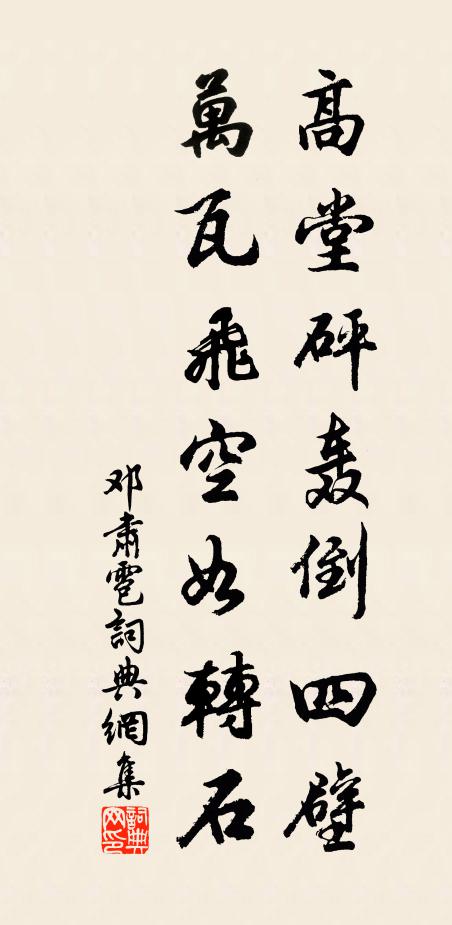 高堂砰轰倒四壁
萬瓦飛空如轉石
邓肅雹詞典網集
詞典网印